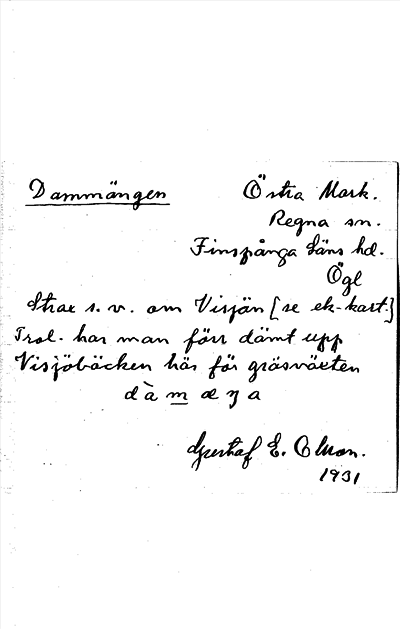 Dammängen Östra Mark.
Regna sn.
Finspånga läns hd.
Ögl
Strax s. v. om Visjön [se ek-kart.]
Trol. har man förr dämt upp
Visjöbäcken här för gräsväxten
dàmæŋa
Gustaf E. Olsson.
1931